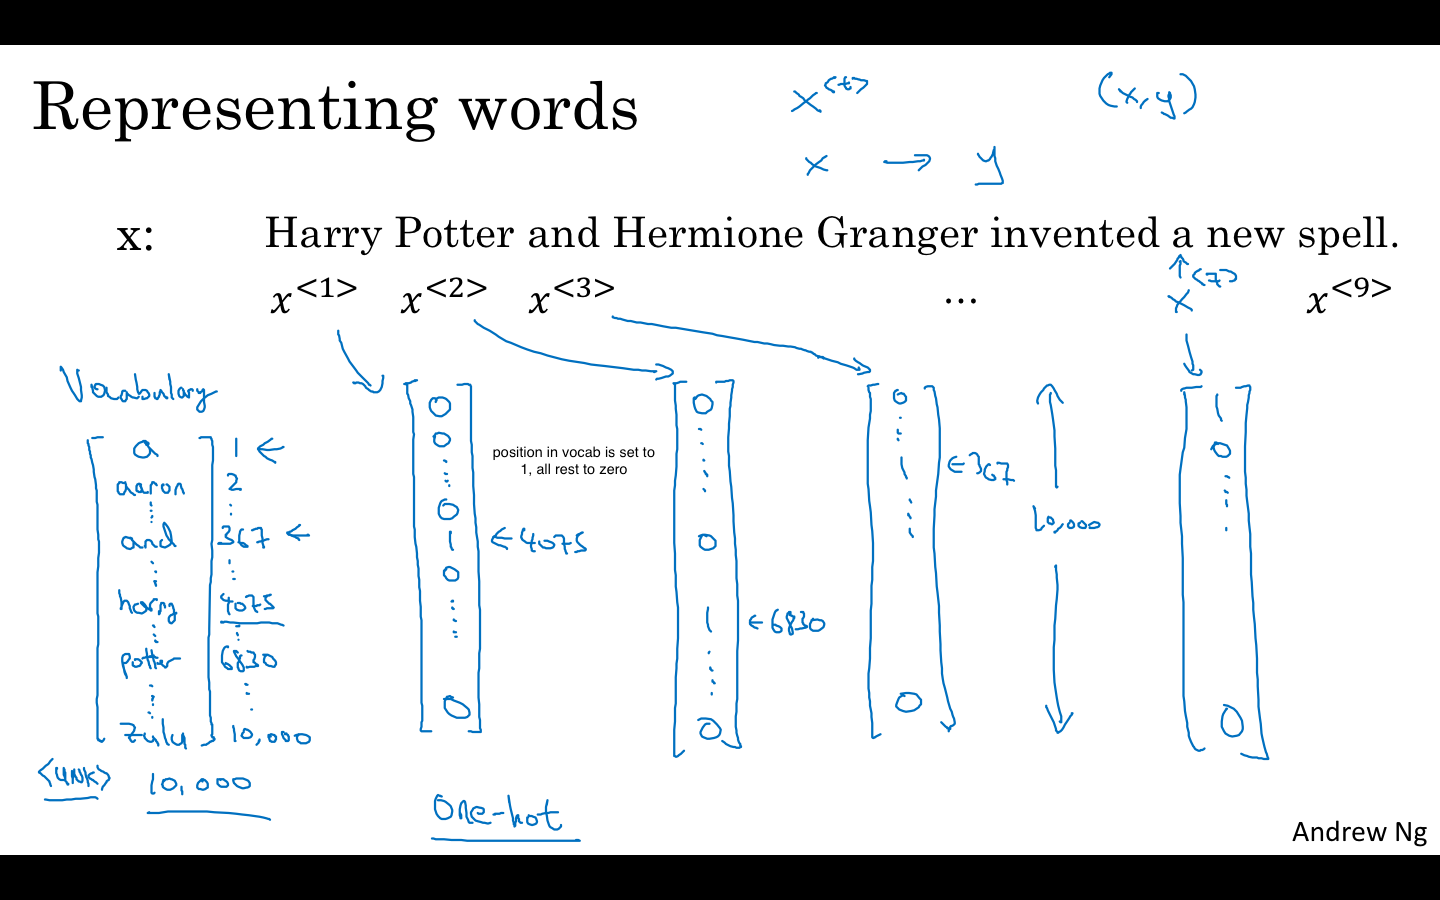 Representing words
x<t>
(x,y)
x → y
x: Harry Potter and Hermione Granger invented a new spell.
x<1> x<2> x<3> ... x<7> x<9>
Vocabulary
a 1 ←
aaron 2
and 367 ←
harry 4075
potter 6830
zulu 10,000
<UNK> 10,000
0
0
0
1 ← 4075
0
0
position in vocab is set to
1, all rest to zero
0
0
1 ← 6830
0
0
1 ← 367
0
10,000
1
0
0
One-hot
Andrew Ng